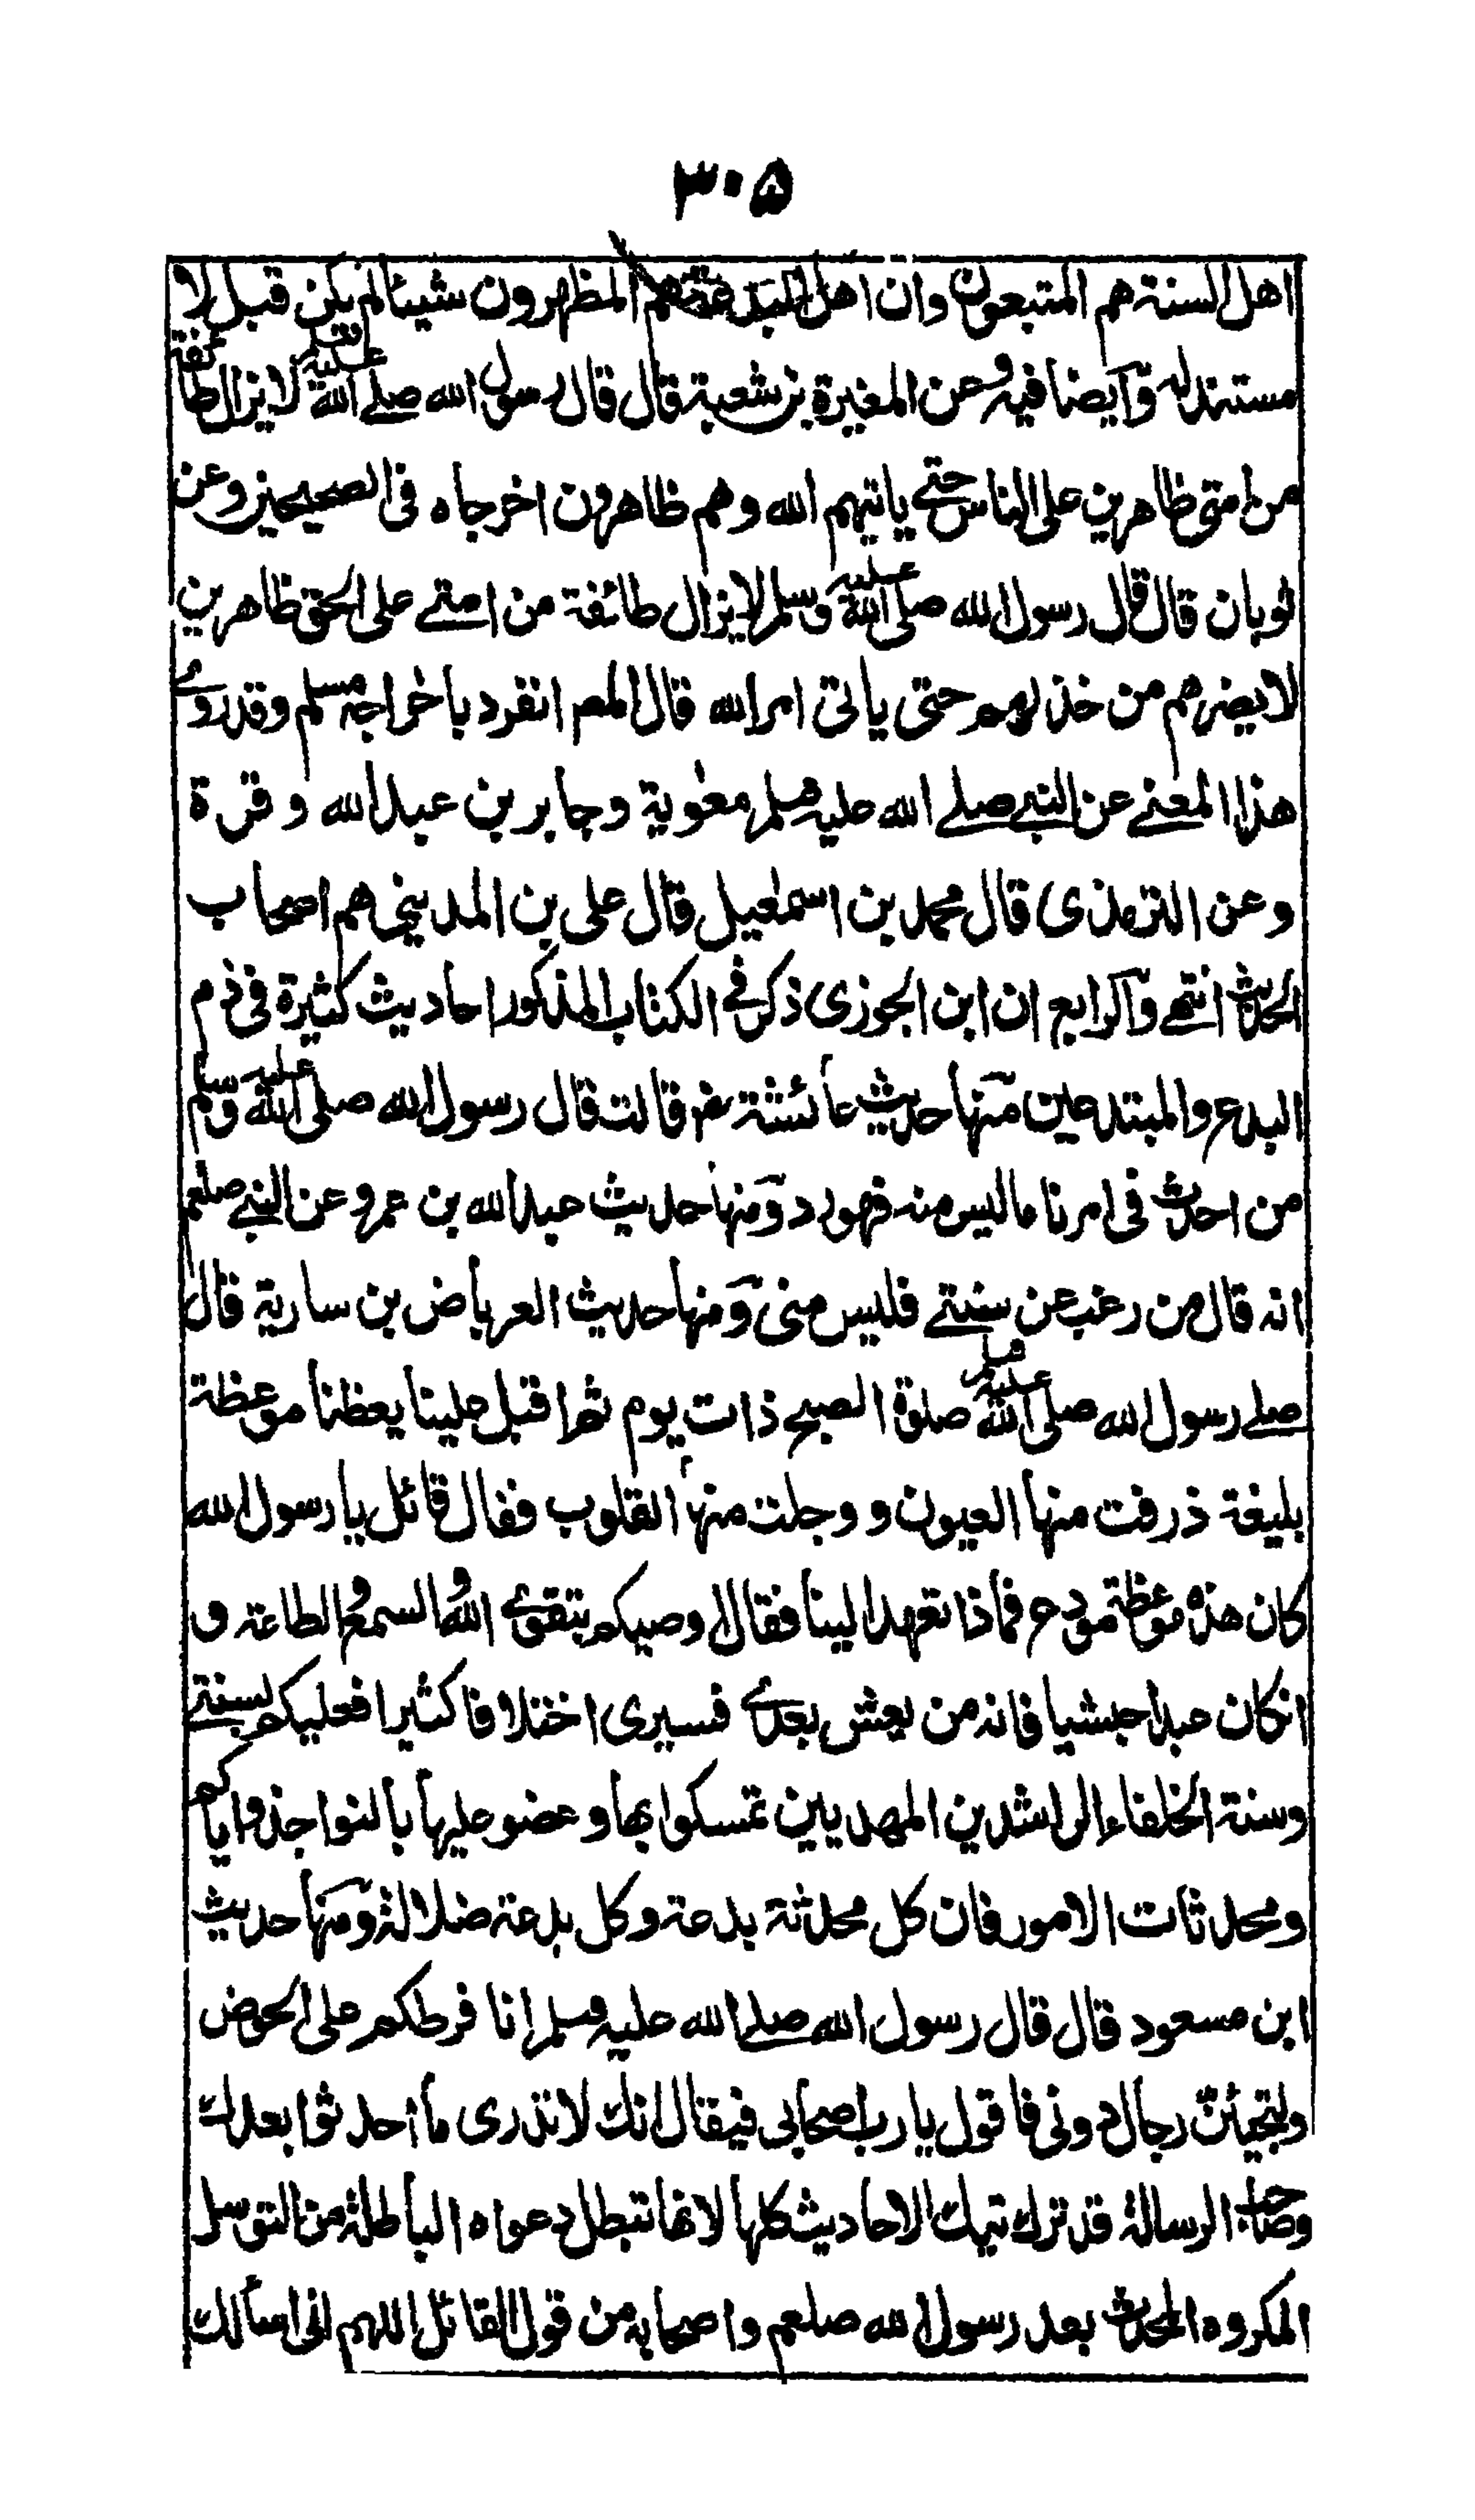 ٣٠٥
اهل السنة هم المتبعون وان اهل البدعة هم المظهرون شيئا لم يكن قبل ولا
مستند له وآيضا فيه وعن المغيرة بن شعبة قال قال رسول الله صلے الله عليه وسلم لا يزال طائفة
من امتى ظاهرين على الناس حتے ياتيهم الله وهم ظاهرون اخرجاه فى الصحيحين وعن
ثوبان قال قال رسول الله صلى الله عليه وسلم لا يزال طائفة من امتے على الحق ظاهرين
لا يضرهم من خذلهم حتى ياتى امر الله قال المصر انفرد باخراجه مسلم وقد روے
هذا المعنے عن النبي صلے الله عليه وسلم معٰوية وجابر بن عبد الله وقرة
وعن الترمذى قال محمد بن اسمٰعيل قال على بن المديني هم اصحاب
الحديث انتهے وآلرابع ان ابن الجوزى ذكر فے الكتاب المذكور احاديث كثيرة فى ذم
البدع والمبتدعين منها حديث عائشة رض قالت قال رسول الله صلى الله عليه وسلم
من احدث فى امرنا ما ليس منه فهو رد ومنها حديث عبد الله بن عمرو عن النبے صلعم
انه قال من رغب عن سنتے فليس منى ومنها حديث العرباض بن سارية قال
صلے رسول الله صلى الله عليه وسلم صلوة الصبح ذات يوم ثم اقبل علينا يعظنا موعظة
بليغة ذرفت منها العيون ووجلت منها القلوب فقال قائل يا رسول الله
كان هذه موعظة مودع فماذا تعهد الينا فقال اوصيكم بتقوے الله والسمع والطاعة و
ان كان عبدا حبشيا فانه من يعش بعدے فسيرى اختلافا كثيرا فعليكم بسنتے
وسنة الخلفاء الراشدين المهديين تمسكوا بها وعضو عليها بالنواجذ واياكم
ومحدثات الامور فان كل محدثة بدعة وكل بدعة ضلالة ومنها حديث
ابن مسعود قال قال رسول الله صلے الله عليه وسلم انا فرطكم على الحوض
وليجيئن رجال دونى فاقول يا رب اصحابى فيقال انك لا تدرى ما احدثوا بعدك
وصاحب الرسالة قد ترك تيك الاحاديث كلها لانها تبطل دعواه الباطلة من التوسل
المكروه المحدث بعد رسول الله صلعم واصحابه من قول القائل اللهم انى اسألك